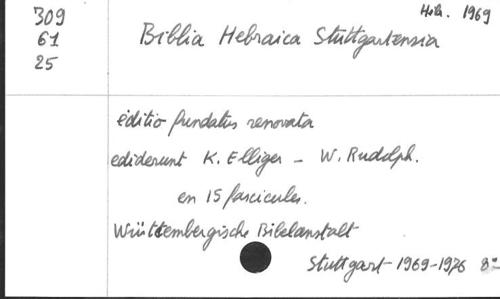 309
61
25
Heb. 1969
Biblia Hebraica Stuttgartensia
editio funditus renovata
ediderunt K. Elliger - W. Rudolph.
en 15 fascicules.
Württembergische Bibelanstalt
Stuttgart 1969-1976 8°